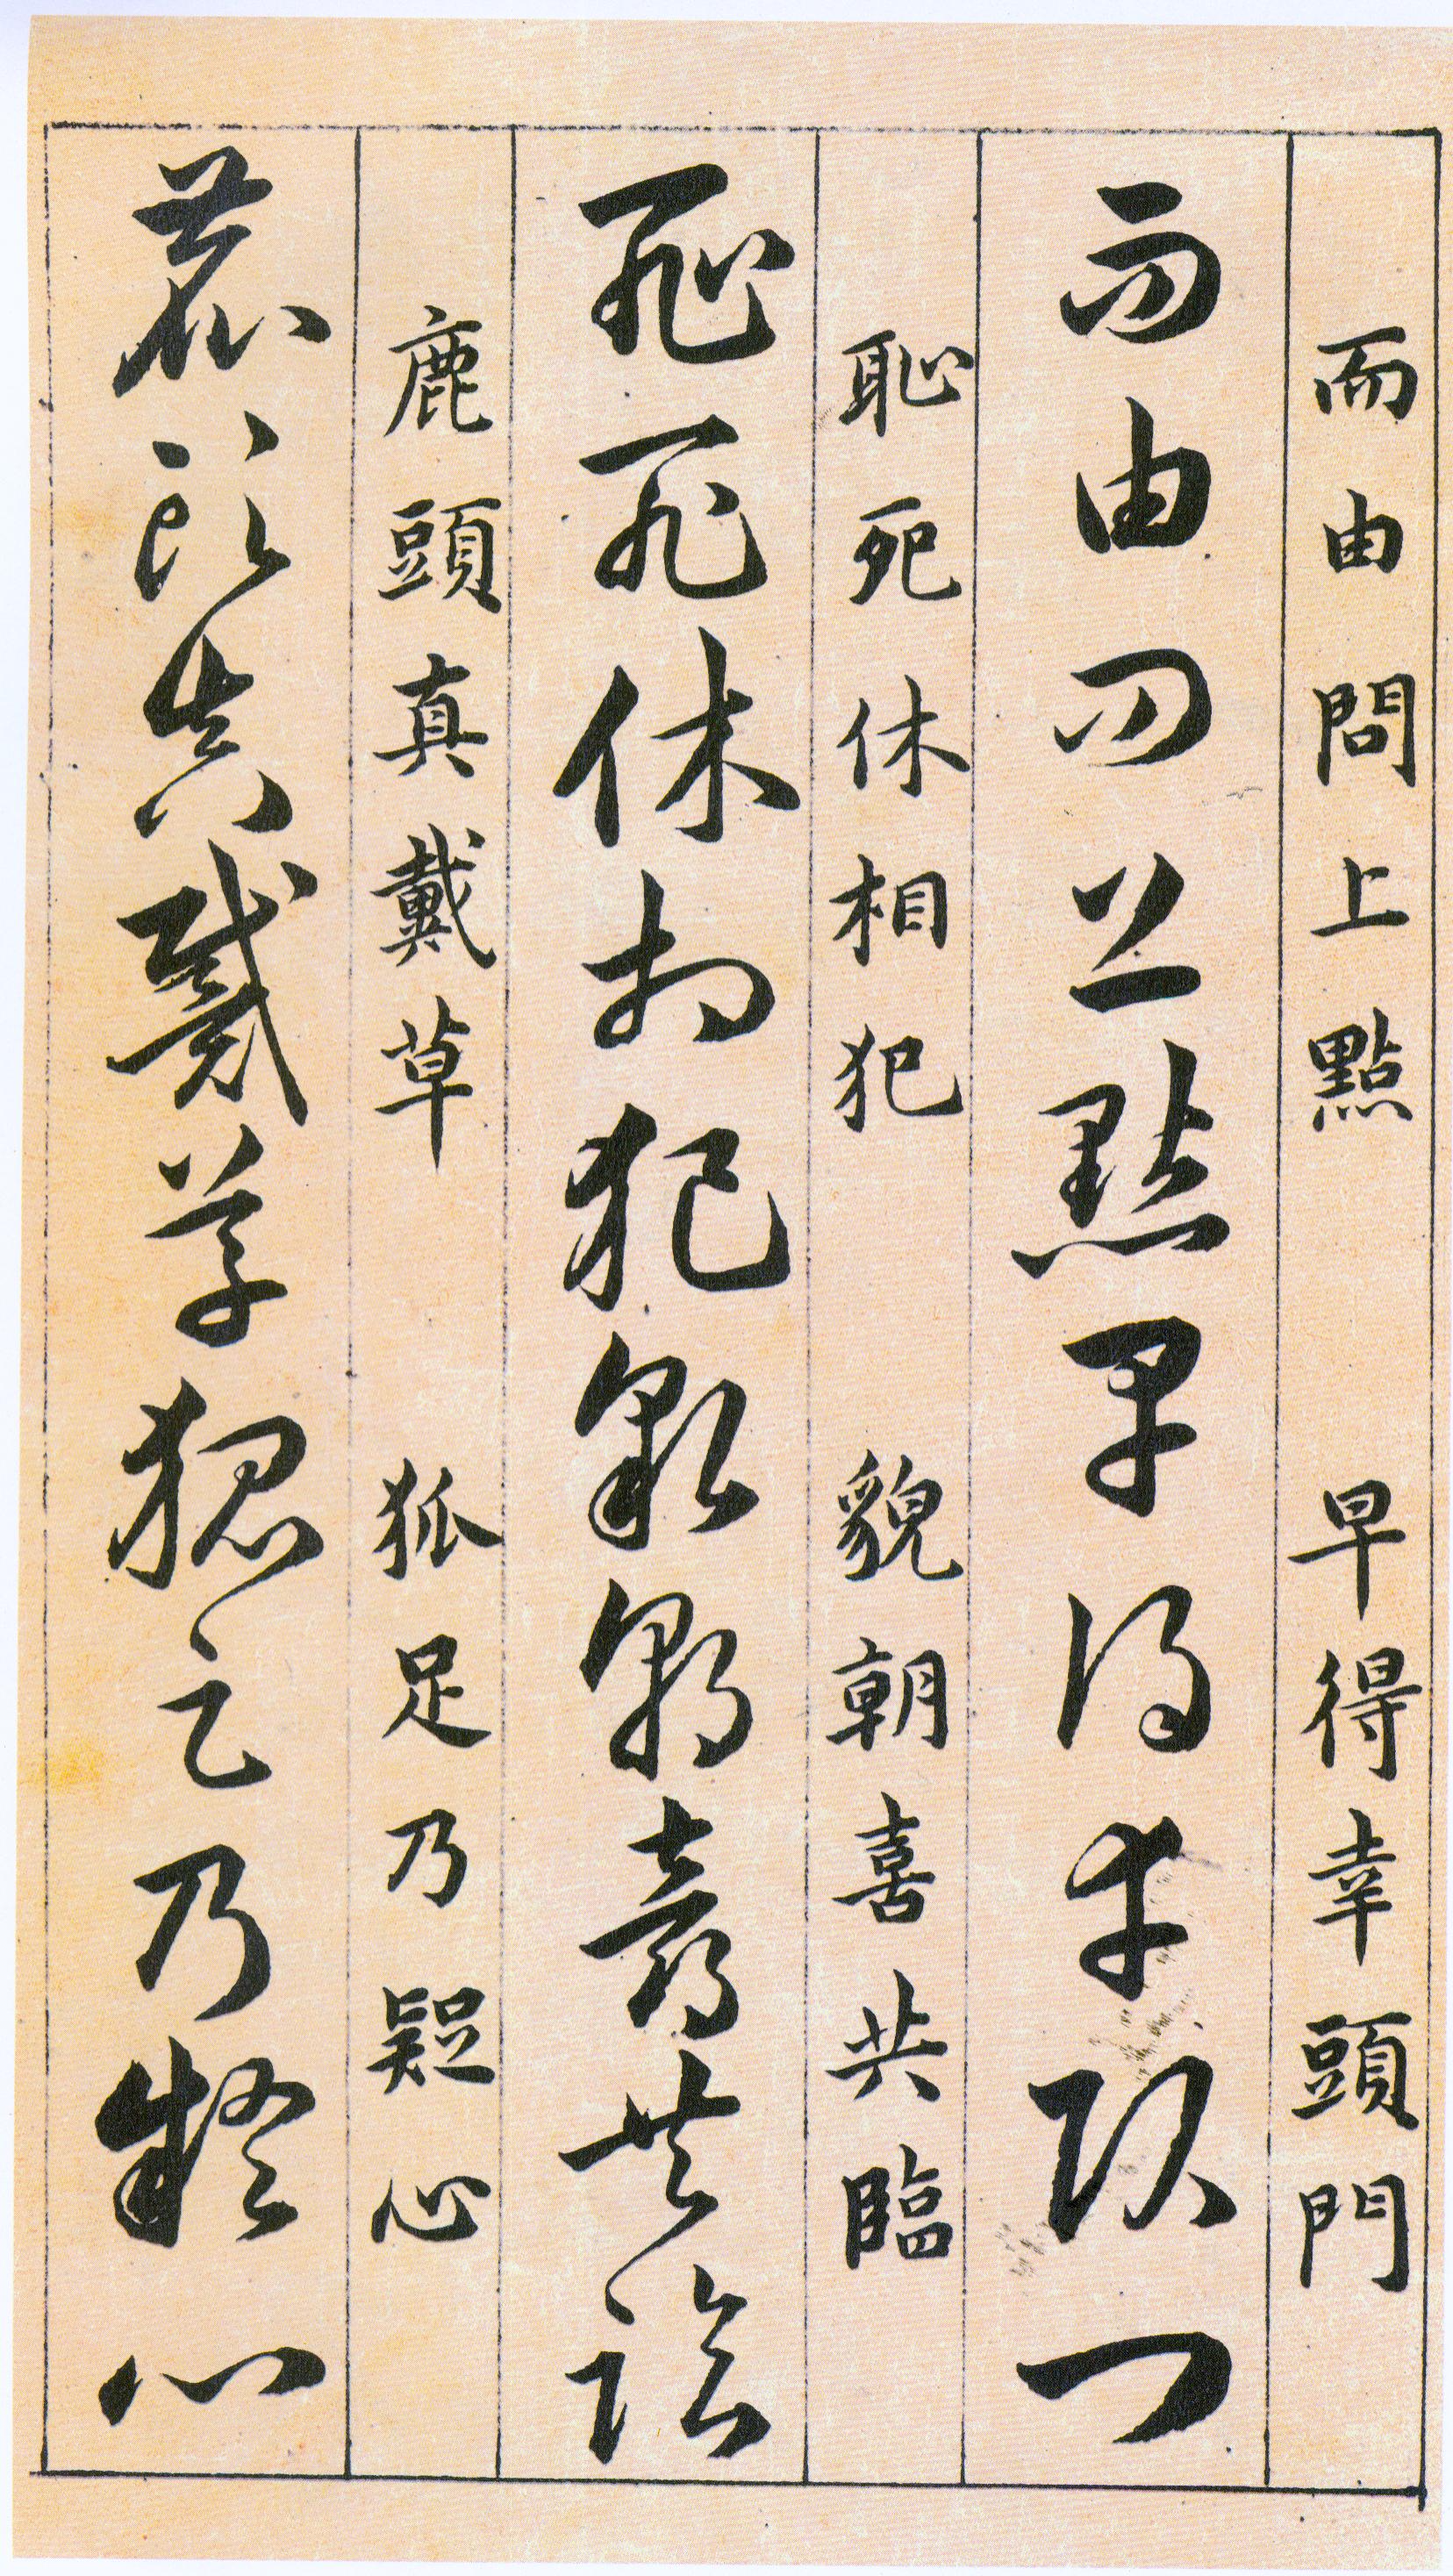 而由問上點 早得幸頭門
而由問上點早得幸頭門
恥死休相犯 貌朝喜共臨
恥死休相犯貌朝喜共臨
鹿頭真戴草 狐足乃疑心
鹿頭真戴草狐足乃疑心